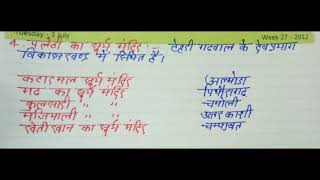 Tuesday - 3 July
Week 27 - 2012
4- पलेठी का सूर्य मंदिर :- टेहरी गढवाल के देवप्रयाग
विकासखण्ड में स्थित है।
कटारमल सूर्य मंदिर अल्मोडा
मढ का सूर्य मंदिर पिथौरागढ
कुलसाडी " " चमोली
मैंजियाली " " उत्तरकाशी
खेतीखान का सूर्य मंदिर चम्पावत